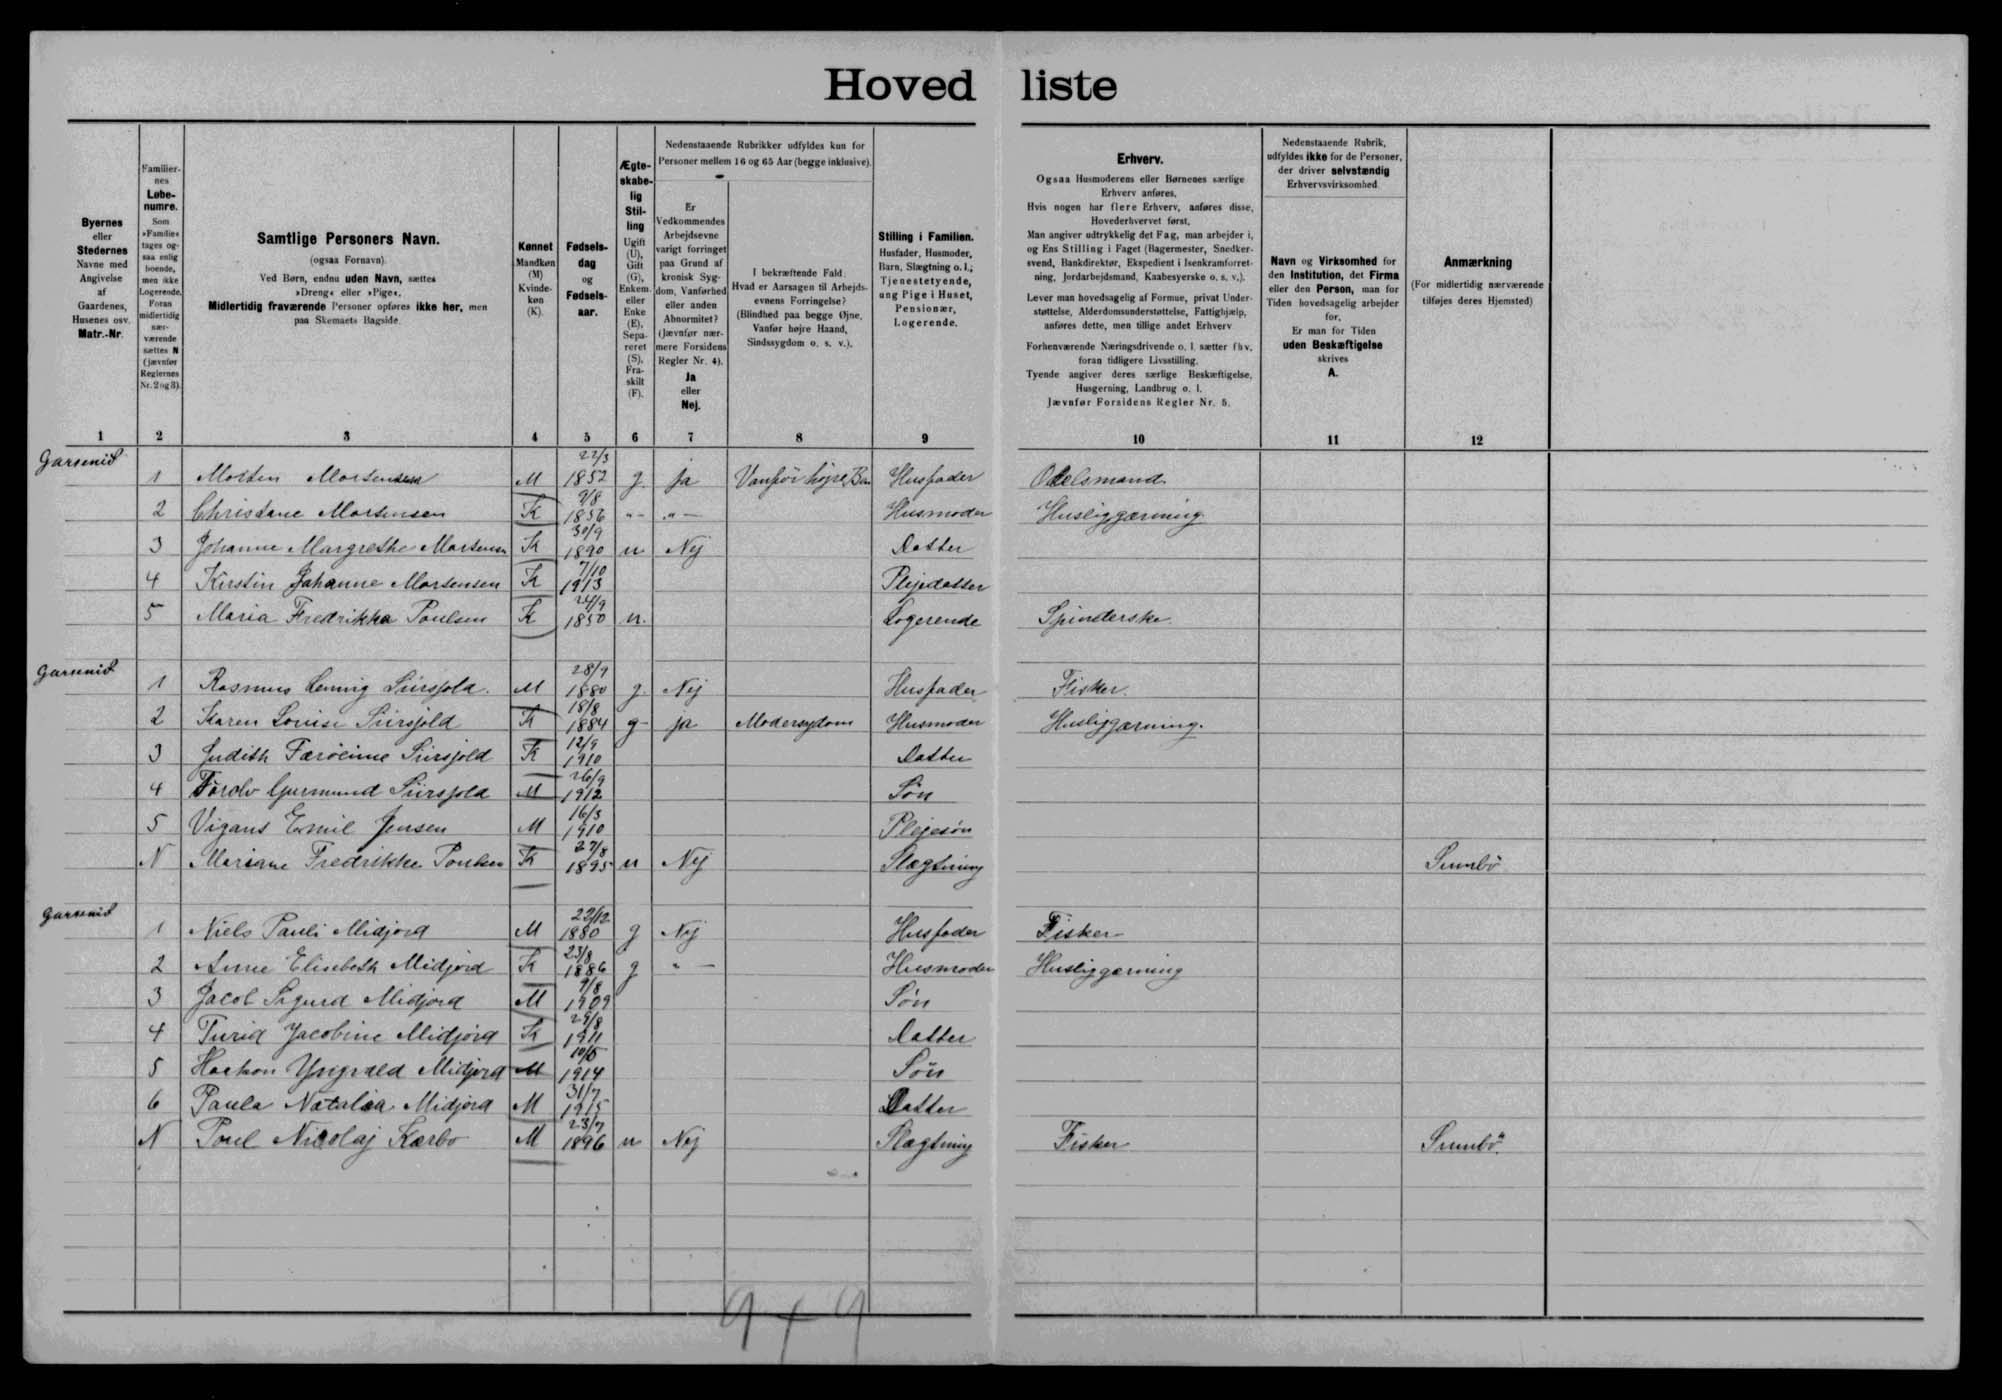 Hoved liste
Byernes
eller
Stedernes
Navne med
Angivelse
af
Gaardenes,
Husenes osv.
Matr.-Nr.
Familier-
nes
Løbe-
numre.
Som
»Familie«
tages og-
saa enlig
boende,
men ikke
Logerende.
Foran
midlertidig
nær-
værende
sættes N
(jævnfør
Reglernes
Nr. 2 og 3).
Samtlige Personers Navn.
(ogsaa Fornavn).
Ved Børn, endnu uden Navn, sættes
»Dreng« eller »Pige«.
Midlertidig fraværende Personer opføres ikke her, men
paa Skemaets Bagside.
Kønnet
Mandkøn
(M)
Kvinde-
køn
(K).
Fødsels-
dag
og
Fødsels-
aar.
Ægte-
skabe-
lig
Stil-
ling
Ugift
(U),
Gift
(G),
Enkem.
eller
Enke
(E),
Sepa-
reret
(S),
Fra-
skilt
(F).
Nedenstaaende Rubrikker udfyldes kun for
Personer mellem 16 og 65 Aar (begge inklusive).
Er
Vedkommendes
Arbejdsevne
varigt forringet
paa Grund af
kronisk Syg-
dom, Vanførhed
eller anden
Abnormitet?
(Jævnfør nær-
mere Forsidens
Regler Nr. 4).
Ja
eller
Nej.
I bekræftende Fald:
Hvad er Aarsagen til Arbejds-
evnens Forringelse?
(Blindhed paa begge Øjne,
Vanfør højre Haand,
Sindssygdom o. s. v.).
Stilling i Familien.
Husfader, Husmoder,
Barn, Slægtning o. l.;
Tjenestetyende,
ung Pige i Huset,
Pensionær,
Logerende.
Erhverv.
Ogsaa Husmoderens eller Børnenes særlige
Erhverv anføres.
Hvis nogen har flere Erhverv, anføres disse,
Hovederhvervet først.
Man angiver udtrykkelig det Fag, man arbejder i,
og Ens Stilling i Faget (Bagermester, Snedker-
svend, Bankdirektør, Ekspedient i Isenkramforret-
ning, Jordarbejdsmand, Kaabesyerske o. s. v.).
Lever man hovedsagelig af Formue, privat Under-
støttelse, Alderdomsunderstøttelse, Fattighjælp,
anføres dette, men tillige andet Erhverv
Forhenværende Næringsdrivende o. l. sætter fhv.
foran tidligere Livsstilling.
Tyende angiver deres særlige Beskæftigelse,
Husgerning, Landbrug o. l.
Jævnfør Forsidens Regler Nr. 5.
Nedenstaaende Rubrik,
udfyldes ikke for de Personer,
der driver selvstændig
Erhvervsvirksomhed
Navn og Virksomhed for
den Institution, det Firma
eller den Person, man for
Tiden hovedsagelig arbejder
for.
Er man for Tiden
uden Beskæftigelse
skrives
A.
Anmærkning
(For midlertidig nærværende
tilføjes deres Hjemsted)
1 2 3 4 5 6 7 8 9 10 11 12
Garsenid
1 Morten Mortensen M 22/3 1852 g. ja Vanför höjre Ben Husfader Odelsmand
2 Christane Mortensen K 1856 "- "- Husmoder Husliggærning
3 Johanne Margrethe Mortensen K 30/9 1890 u Nej Datter
4 Kirstin Johanne Mortensen K 7/10 1913 Plejedatter
5 Maria Fredrikka Poulsen K 24/9 1850 u. Logerende Spinderske.
Garsenid
1 Rasmus Lennig Sürsjold. M 28/9 1880 g. Nej Husfader Fisker.
2 Karen Louise Sürsjold K 18/8 1884 g- ja Modersygdom Husmoder Husliggærning.
3 Judith Færöeime Sürsjold K 12/9 1910 Datter
4 Tórolv Gurmund Sürsjold M 26/9 1912 Søn
5 Vigans Emil Jensen M 16/3 1910 Plejesøn
N Mariane Fredrikke Poulsen K 27/8 1895 u Nej Slægtning Sumbö
Garsenid
1 Niels Pauli Midjord M 22/12 1880 g Nej Husfader Fisker
2 Anne Elisebeth Midjord K 23/8 1886 g "- Husmoder Husliggærning
3 Jacob Sigurd Midjord M 9/8 1909 Søn
4 Turid Jacobine Midjord K 29/8 1911 Datter
5 Haakon Yngvald Midjord M 10/5 1914 Søn
6 Paula Natalia Midjord M 31/7 1915 Datter
N Poul Nicolaj Kærbo M 23/7 1896 u Nej Slægtning Fisker Sumbö.
9 + 9